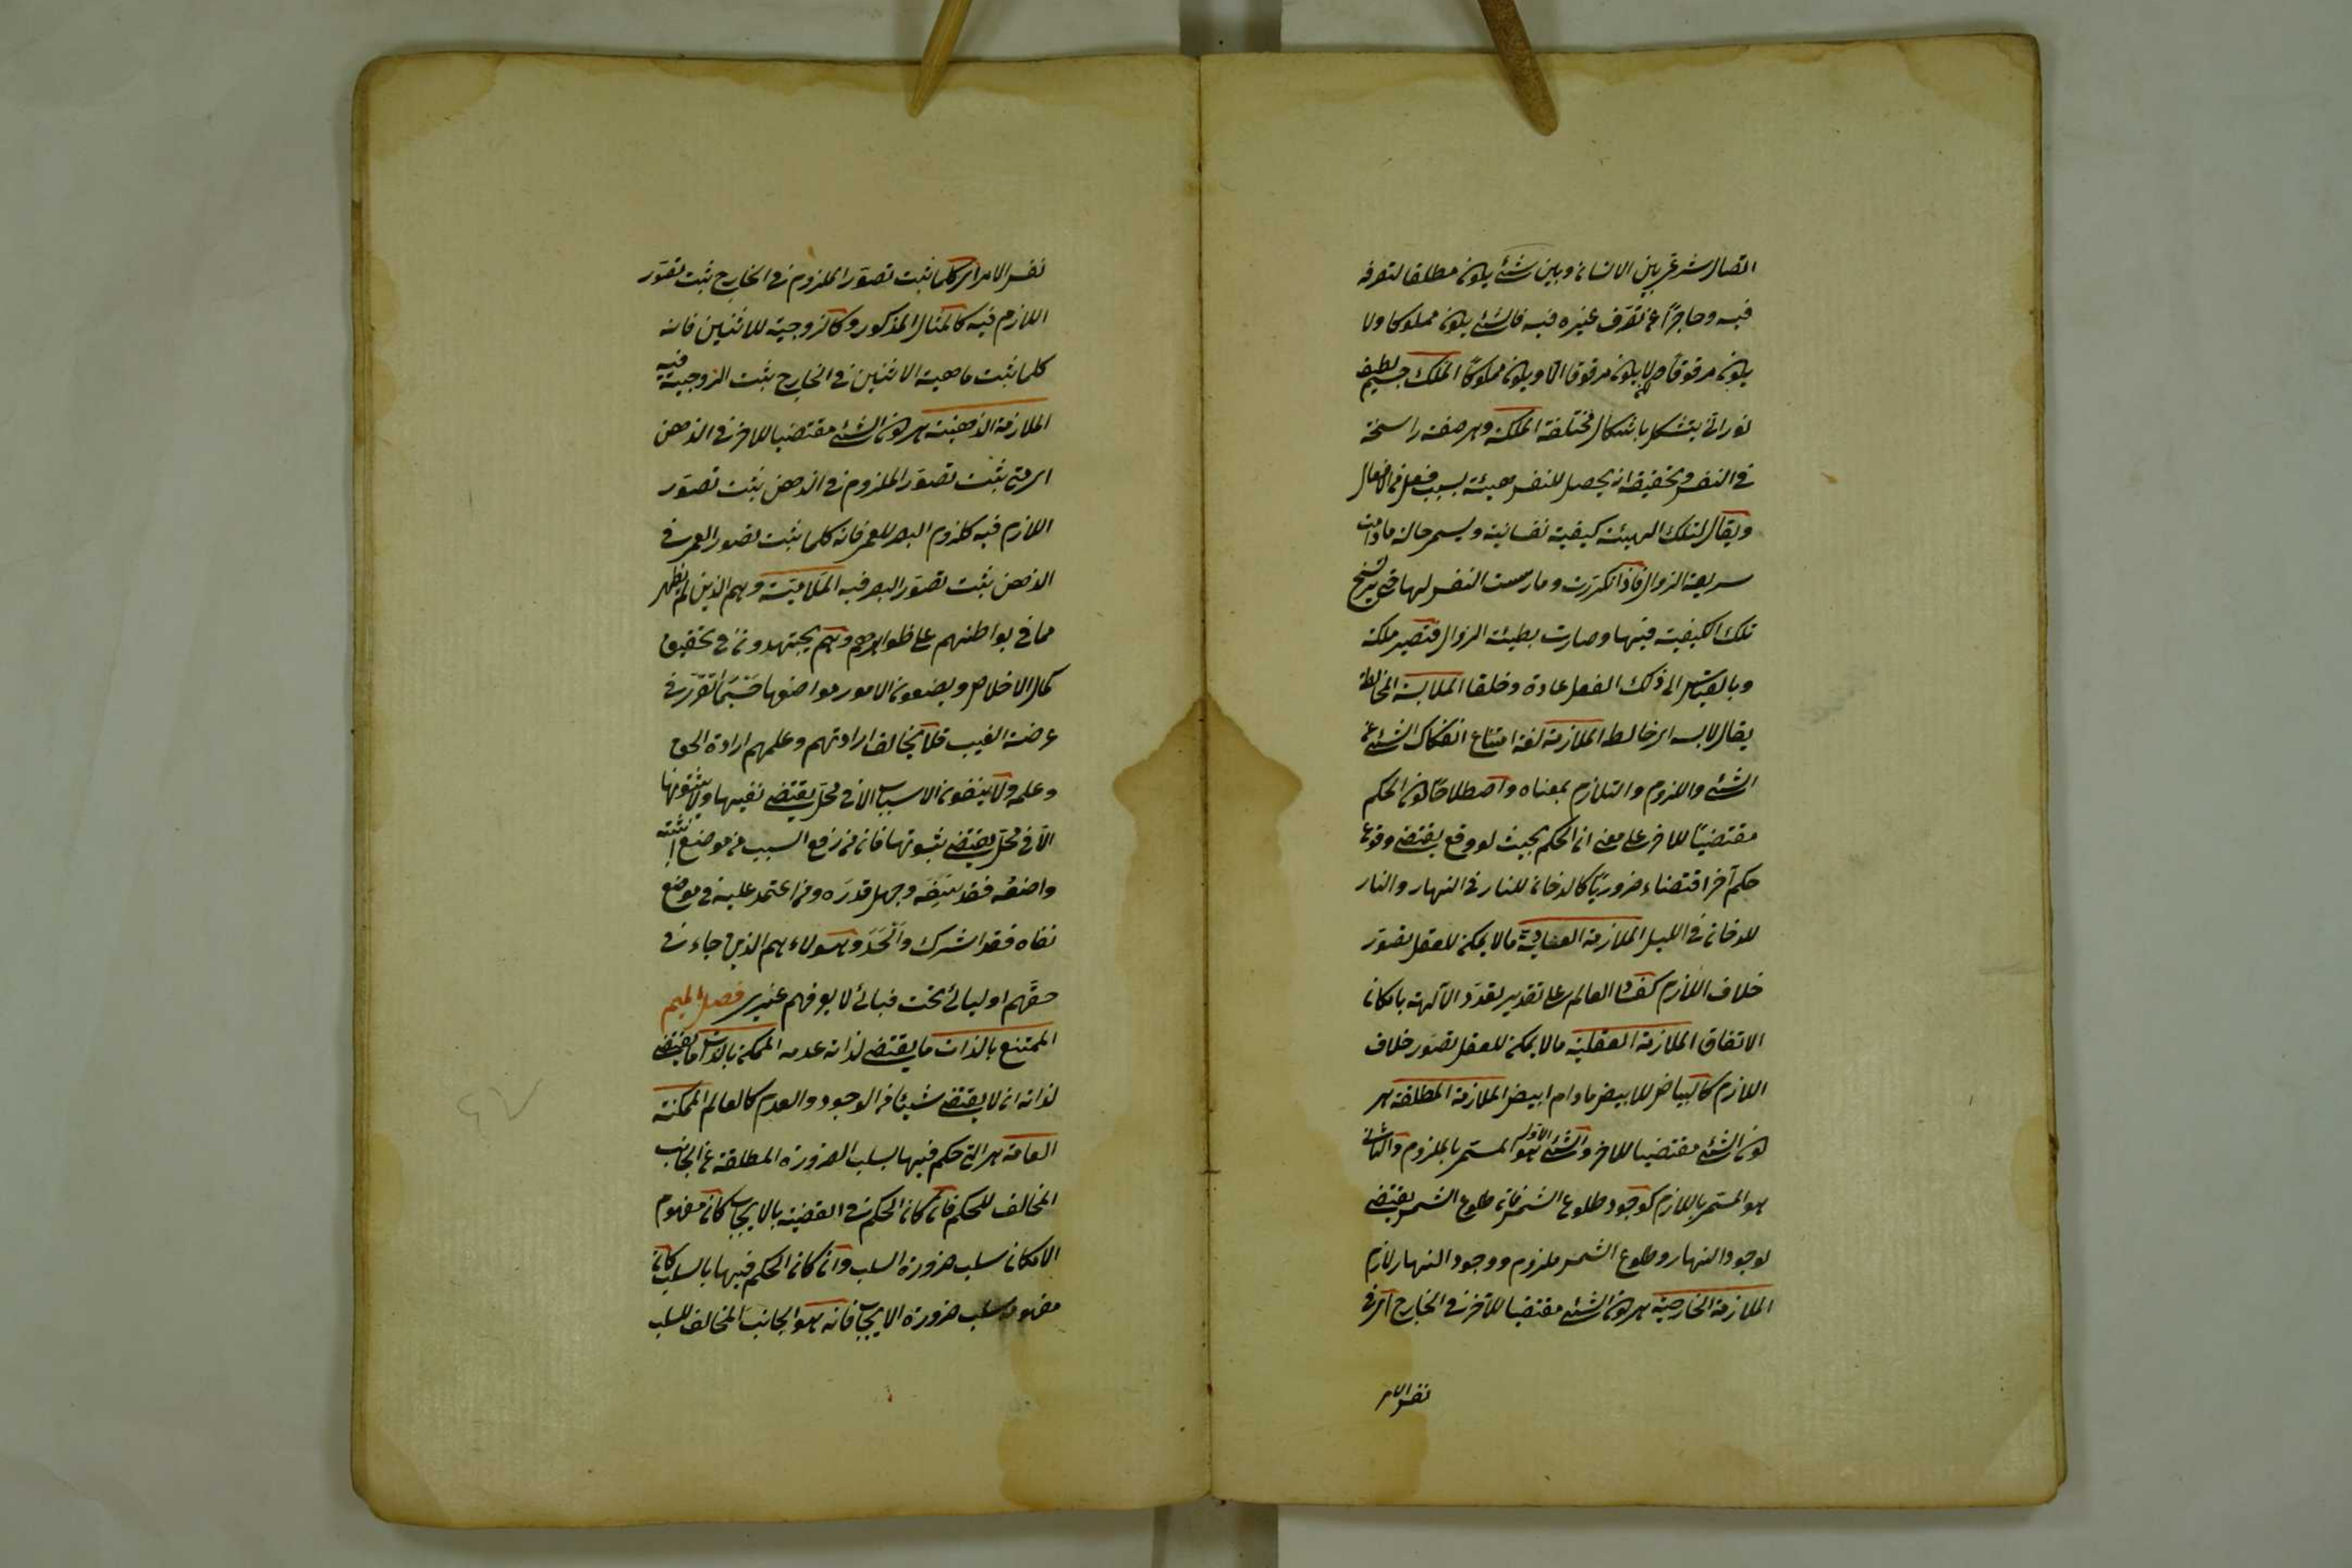 اتصال شرعي بين الانسان وبين شئ يكون مطلقا لتصرفه
فيه وحاجزا عن تصرف غيره فيه فالشئ يكون مملوكا ولا
يكون مرقوقا ولا يكون مرقوقا الا ويكون مملوكا الملك جسم لطيف
نورانى يتشكل باشكال مختلفة الملكة وهى صفة راسخة
فى النفس وتحقيقه انه يحصل للنفس هيئة بسبب فعل من الافعال
ويقال لتلك الهيئة كيفية نفسانية ويسمى حالة ما دامت
سريعة الزوال فاذا تكررت ومارست النفس لها حتى يرسخ
تلك الكيفية فيها وصارت بطيئة الزوال فتصير ملكة
وبالقياس الى ذلك الفعل عادة وخلقا الملابسة المخالطة
يقال لابسه اى خالطه الملازمة لغة امتناع انفكاك الشئ عن
الشئ واللزوم والتلازم بمعناه واصطلاحا كون الحكم
مقتضيا للاخر على معنى ان الحكم بحيث لو وقع يقتضى وقوع
حكم آخر اقتضاء ضروريا كالدخان للنار فى النهار والنار
للدخان فى الليل الملازمة العادية ما لا يمكن للعقل تصور
خلاف اللازم كفساد العالم على تقدير تعدد الآلهة بامكان
الاتفاق الملازمة العقلية ما لا يمكن للعقل تصور خلاف
اللازم كالبياض للابيض ما دام ابيض الملازمة المطلقة هى
كون الشئ مقتضيا للاخر والشئ الاول هو المسمى بالملزوم والثانى
هو المسمى باللازم كوجود طلوع الشمس فان طلوع الشمس يقتضى
لوجود النهار وطلوع الشمس ملزوم ووجود النهار لازم
الملازمة الخارجية هى كون الشئ مقتضيا للآخر فى الخارج اى فى
نفس الامر
نفس الامر اى كلما ثبت تصور الملزوم فى الخارج ثبت تصور
اللازم فيه كالمثال المذكور وكالزوجية للاثنين فانه
كلما ثبت ماهية الاثنين فى الخارج يثبت الزوجية فيه
الملازمة الذهنية هى كون الشئ مقتضيا للاخر فى الذهن
اى متى يثبت تصور الملزوم فى الذهن يثبت تصور
اللازم فيه كلزوم البصر للعمى فانه كلما يثبت تصور العمى فى
الذهن يثبت تصور البصر فيه الملامتية وهم الذين لم يظهر
مما فى بواطنهم على ظواهرهم وهم يجتهدون فى تحقيق
كمال الاخلاص ويضعون الامور مواضعها حسبما تقرر فى
عرصة الغيب فلا يخالف ارادتهم وعلمهم ارادة الحق
وعلمه ولا ينفون الاسباب الا فى محل يقتضى نفيها ولا يثبتونها
الا فى محل يقتضى ثبوتها فان من رفع السبب من موضع اثبته
واضعه فقد سفه وجهل قدره ومن اعتمد عليه فى موضع
نفاه فقد اشرك والحد وهؤلاء هم الذين جاء فى
حقهم اوليائى تحت قبائى لا يعرفهم غيرى فصل الميم
الممتنع بالذات ما يقتضى لذاته عدمه الممكن بالذات ما يقتضى
لذاته ان لا يقتضى شيئا من الوجود والعدم كالعالم الممكنة
العامة هى التى حكم فيها بسلب الضرورة المطلقة عن الجانب
المخالف للحكم فان كان الحكم فى القضية بالايجاب كان مفهوم
الامكان سلب ضرورة السلب وان كان الحكم فيها بالسلب كان
مفهومه سلب ضرورة الايجاب فانه هو الجانب المخالف للسلب